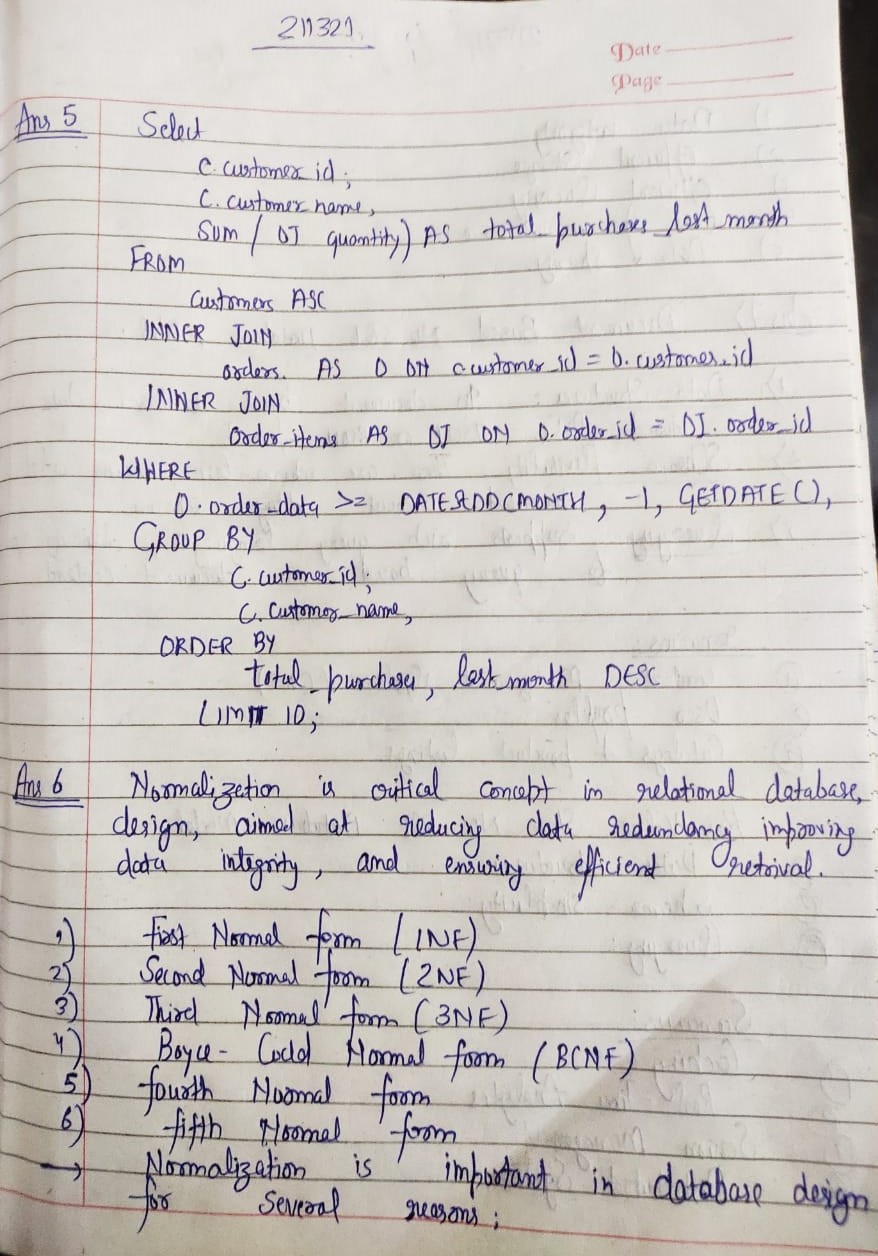 211321.
Date
Page
Ans 5 Select
C. customer id;
C. customer name,
SUM ( OI quantity) AS total purchases last month
FROM
Customers ASC
INNER JOIN
orders. AS O ON c customer id = O. customer_id
INNER JOIN
Order_items AS OI ON O. order_id = OI. order_id
WHERE
O. order_data >= DATEADD(MONTH, -1, GETDATE(),
GROUP BY
C. customer_id;
C. Customer_name,
ORDER BY
total_purchases, last month DESC
LIMIT 10;
Ans 6 Normalization is critical concept in relational database,
design, aimed at reducing data redundancy improving
data integrity, and ensuring efficient retrival.
1) First Normal form (1NF)
2) Second Normal form (2NF)
3) Third Normal form (3NF)
4) Boyce - Codd Normal form (BCNF)
5) fourth Normal form
6) fifth Normal form
→ Normalization is important in database design
for several reasons;